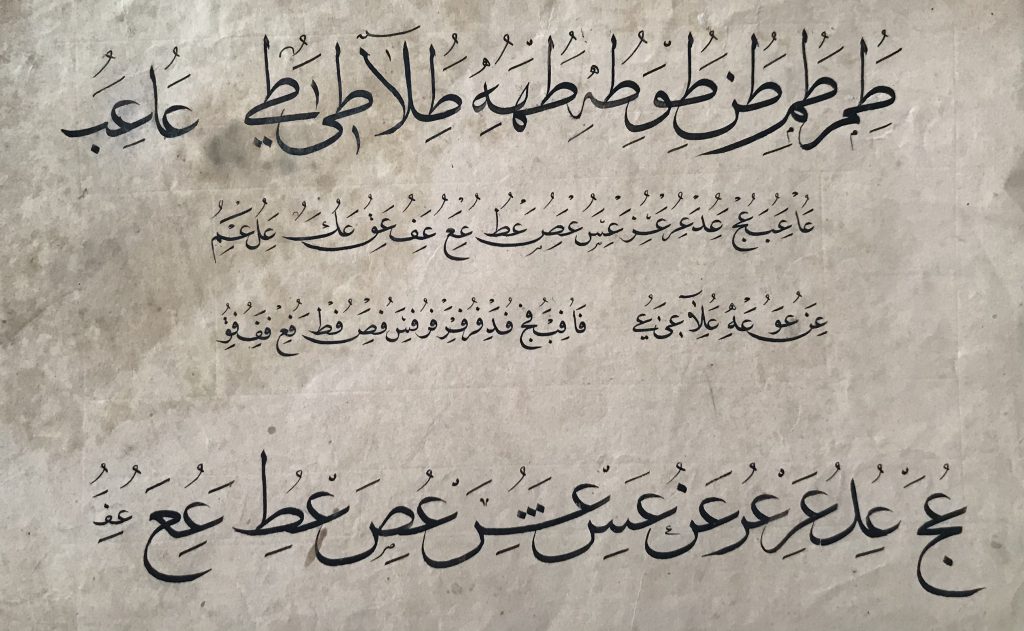 طم طم طن طو طه طهه طلا طى طے عا عب
عا عب عج عد عر عز عس عص عط عع عف عق عك عل عم
عن عو عه علا عى عے فا فب فج فد فر فز فر فس فص فط فع فف فق
عج عد عر عر عز عس عش عص عط عع عف